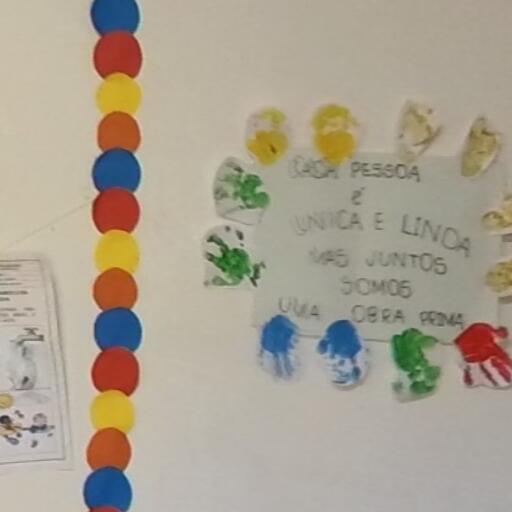 CADA PESSOA
É
ÚNICA E LINDA
MAS JUNTOS
SOMOS
UMA OBRA PRIMA